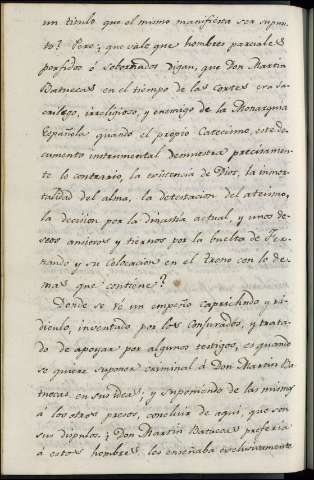 un titulo que el mismo manifiesta ser supues-
to? Pero ¡que vale que hombres parciales
perfidos ó sobornados digan, que Don Martin
Batuecas en el tiempo de las Cortes era sa-
crilego, irreligioso, y enemigo de la Monarquia
Española quando el propio Catecismo, este do-
cumento instrumental demuestra precisamen-
te lo contrario, la existencia de Dios, la inmor-
talidad del alma, la detestacion del ateismo,
la decision por la dinastia actual, y unos de-
seos ansiosos y tiernos por la buelta de Fer-
nando y su colocacion en el trono con lo de-
mas que contiene?
Donde se vé un empeño caprichoso y ri-
diculo, inventado por los Conjurados, y trata-
do de apoyar por algunos testigos, es quando
se quiere suponer criminal á Don Martin Ba-
tuecas en sus ideas, y suponiendo de las mismas
á los otros presos, concluir de aqui, que son
sus dicipulos. ¿Don Martin Batuecas preferia
á estos hombres, les enseñaba exclusivamente